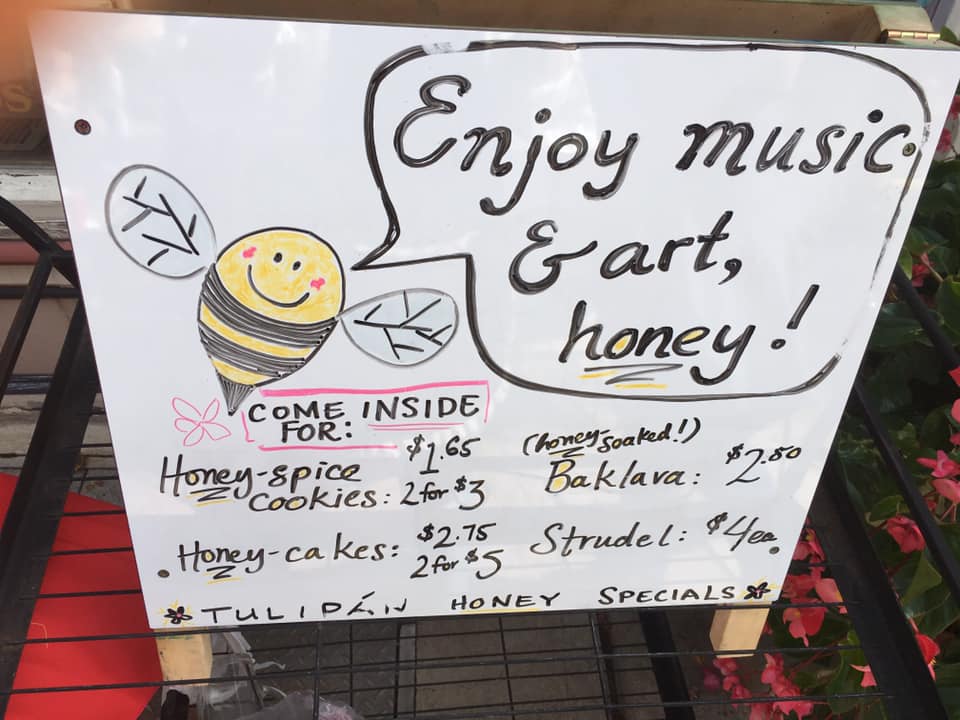 Enjoy music
& art,
honey!
COME INSIDE
FOR:
Honey-spice $1.65
cookies: 2 for $3
(honey-soaked!)
Baklava: $2.50
Honey-cakes: $2.75
2 for $5
Strudel: $4 ea
TULIPÁN HONEY SPECIALS